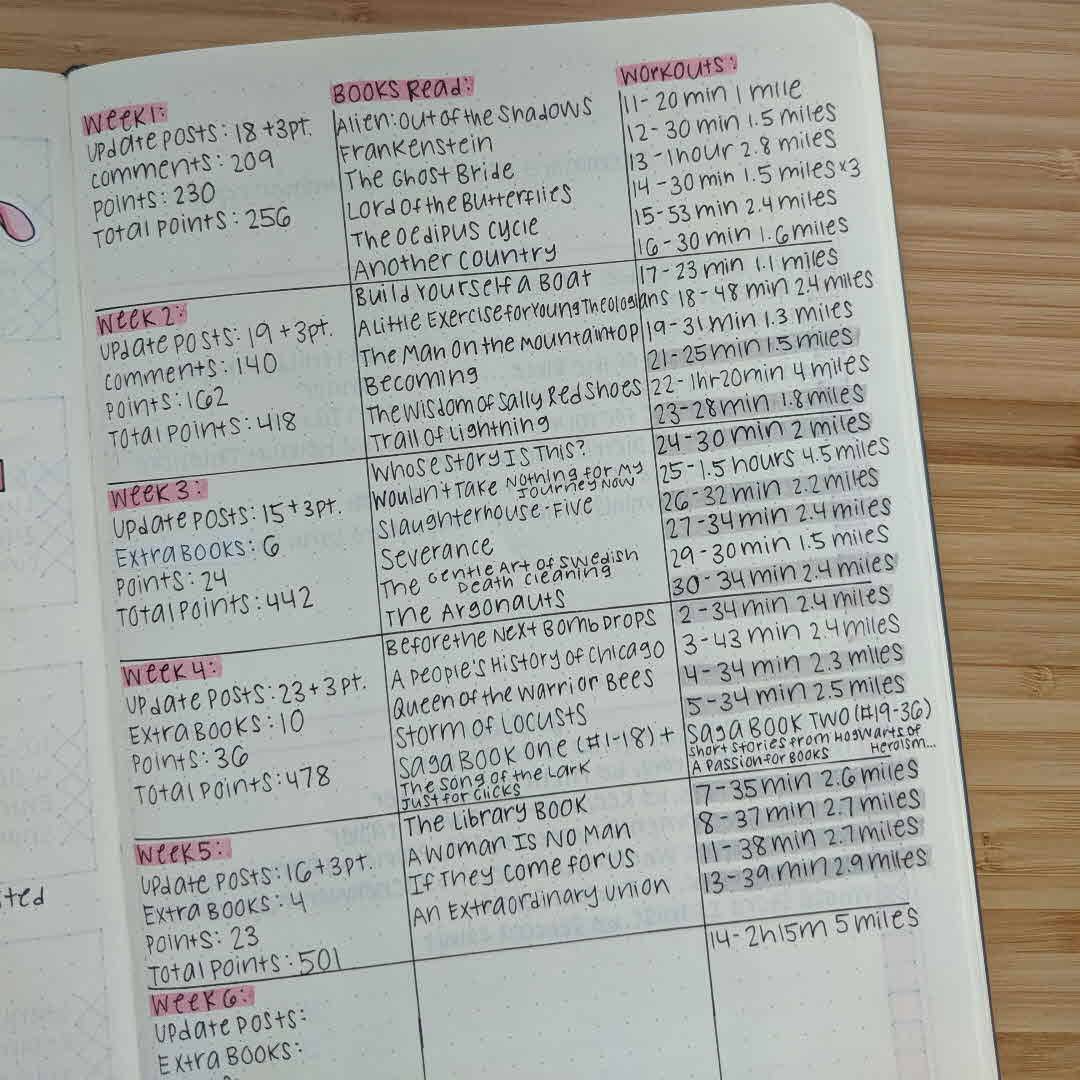 Week 1:
Update Posts: 18 + 3pt.
Comments: 209
Points: 230
Total Points: 256
Books Read:
Alien: Out of the Shadows
Frankenstein
The Ghost Bride
Lord of the Butterflies
The Oedipus Cycle
Another Country
Workouts:
11 - 20 min 1 mile
12 - 30 min 1.5 miles
13 - 1 hour 2.8 miles
14 - 30 min 1.5 miles x3
15 - 53 min 2.4 miles
16 - 30 min 1.6 miles
Week 2:
Update Posts: 19 + 3pt.
Comments: 140
Points: 162
Total Points: 418
Build Yourself a Boat
A Little Exercise for Young Theologians
The Man on the Mountaintop
Becoming
The Wisdom of Sally Red Shoes
Trail of Lightning
17 - 23 min 1.1 miles
18 - 48 min 2.4 miles
19 - 31 min 1.3 miles
21 - 25 min 1.5 miles
22 - 1hr 20min 4 miles
23 - 28 min 1.8 miles
Week 3:
Update Posts: 15 + 3pt.
Extra Books: 6
Points: 24
Total Points: 442
Whose Story Is This?
Wouldn't Take Nothing for My
Journey Now
Slaughterhouse-Five
Severance
The Gentle Art of Swedish
Death Cleaning
The Argonauts
24 - 30 min 2 miles
25 - 1.5 hours 4.5 miles
26 - 32 min 2.2 miles
27 - 34 min 2.4 miles
29 - 30 min 1.5 miles
30 - 34 min 2.4 miles
Week 4:
Update Posts: 23 + 3 pt.
Extra Books: 10
Points: 36
Total Points: 478
Before the Next Bomb Drops
A People's History of Chicago
Queen of the Warrior Bees
Storm of Locusts
Saga Book One (#1-18) +
The Song of the Lark
Just for Clicks
2 - 34 min 2.4 miles
3 - 43 min 2.4 miles
4 - 34 min 2.3 miles
5 - 34 min 2.5 miles
Saga Book Two (#19-36)
Short Stories from Hogwarts of
Heroism...
A Passion for Books
Week 5:
Update Posts: 16 + 3pt.
Extra Books: 4
Points: 23
Total Points: 501
The Library Book
A Woman Is No Man
If They Come for Us
An Extraordinary Union
7 - 35 min 2.6 miles
8 - 37 min 2.7 miles
11 - 38 min 2.7 miles
13 - 39 min 2.9 miles
14 - 2h 15m 5 miles
Week 6:
Update Posts:
Extra Books: